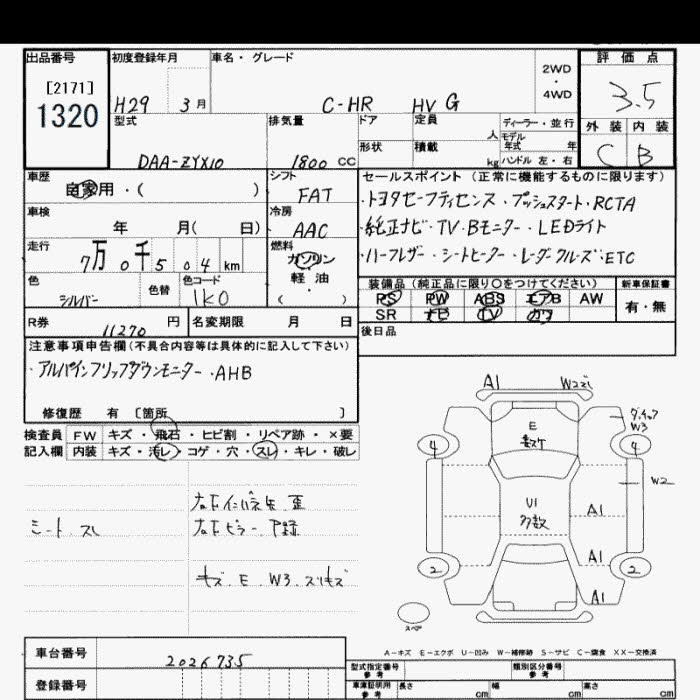 出品番号 初度登録年月 車名・グレード 評価点
[2171]
1320
H29 3月 C-HR HV G 2WD・4WD 3.5
型式 排気量 ドア 定員 ディーラー・並行 外装 内装
人 モデル年式 年
形状 積載 kg ハンドル 左・右
DAA-ZYX10 1800 CC C B
車歴 シフト セールスポイント (正常に機能するものに限ります)
自家用・( ) FAT ・トヨタセーフティセンス・プッシュスタート・RCTA
車検 冷房 ・純正ナビ・TV・Bモニター・LEDライト
年 月( 日) AAC
走行 燃料 ・ハーフレザー・シートヒーター・レーダークルーズ・ETC
7万0千504km ガソリン
色 色替 色コード 軽・油 装備品 (純正品に限り○をつけてください) 新車保証書
シルバー 1K0 ( ) PS PW ABS エアB AW 有・無
SR ナビ TV カワ
R券 11270 円 名変期限 月 日 後日品
注意事項申告欄(不具合内容等は具体的に記入して下さい)
・アルパインフリップダウンモニター・AHB
修復歴 有 〔箇所 〕
検査員 FW キズ・飛石・ヒビ割・リペア跡・×要
記入欄 内装 キズ・汚レ・コゲ・穴・スレ・キレ・破レ
シート.スレ
キズ.E.W3.スリキズ
A1
W3
E
4 4
W2
U1
多数
A1
A1
2 2
A1
スペア
A-キズ E-エクボ U-凹み W-補修跡 S-サビ C-腐食 XX-交換済
車台番号 2026735 型式指定番号 参考 類別区分番号 参考
登録番号 車庫証明用 参考 長さ cm 幅 cm 高さ cm